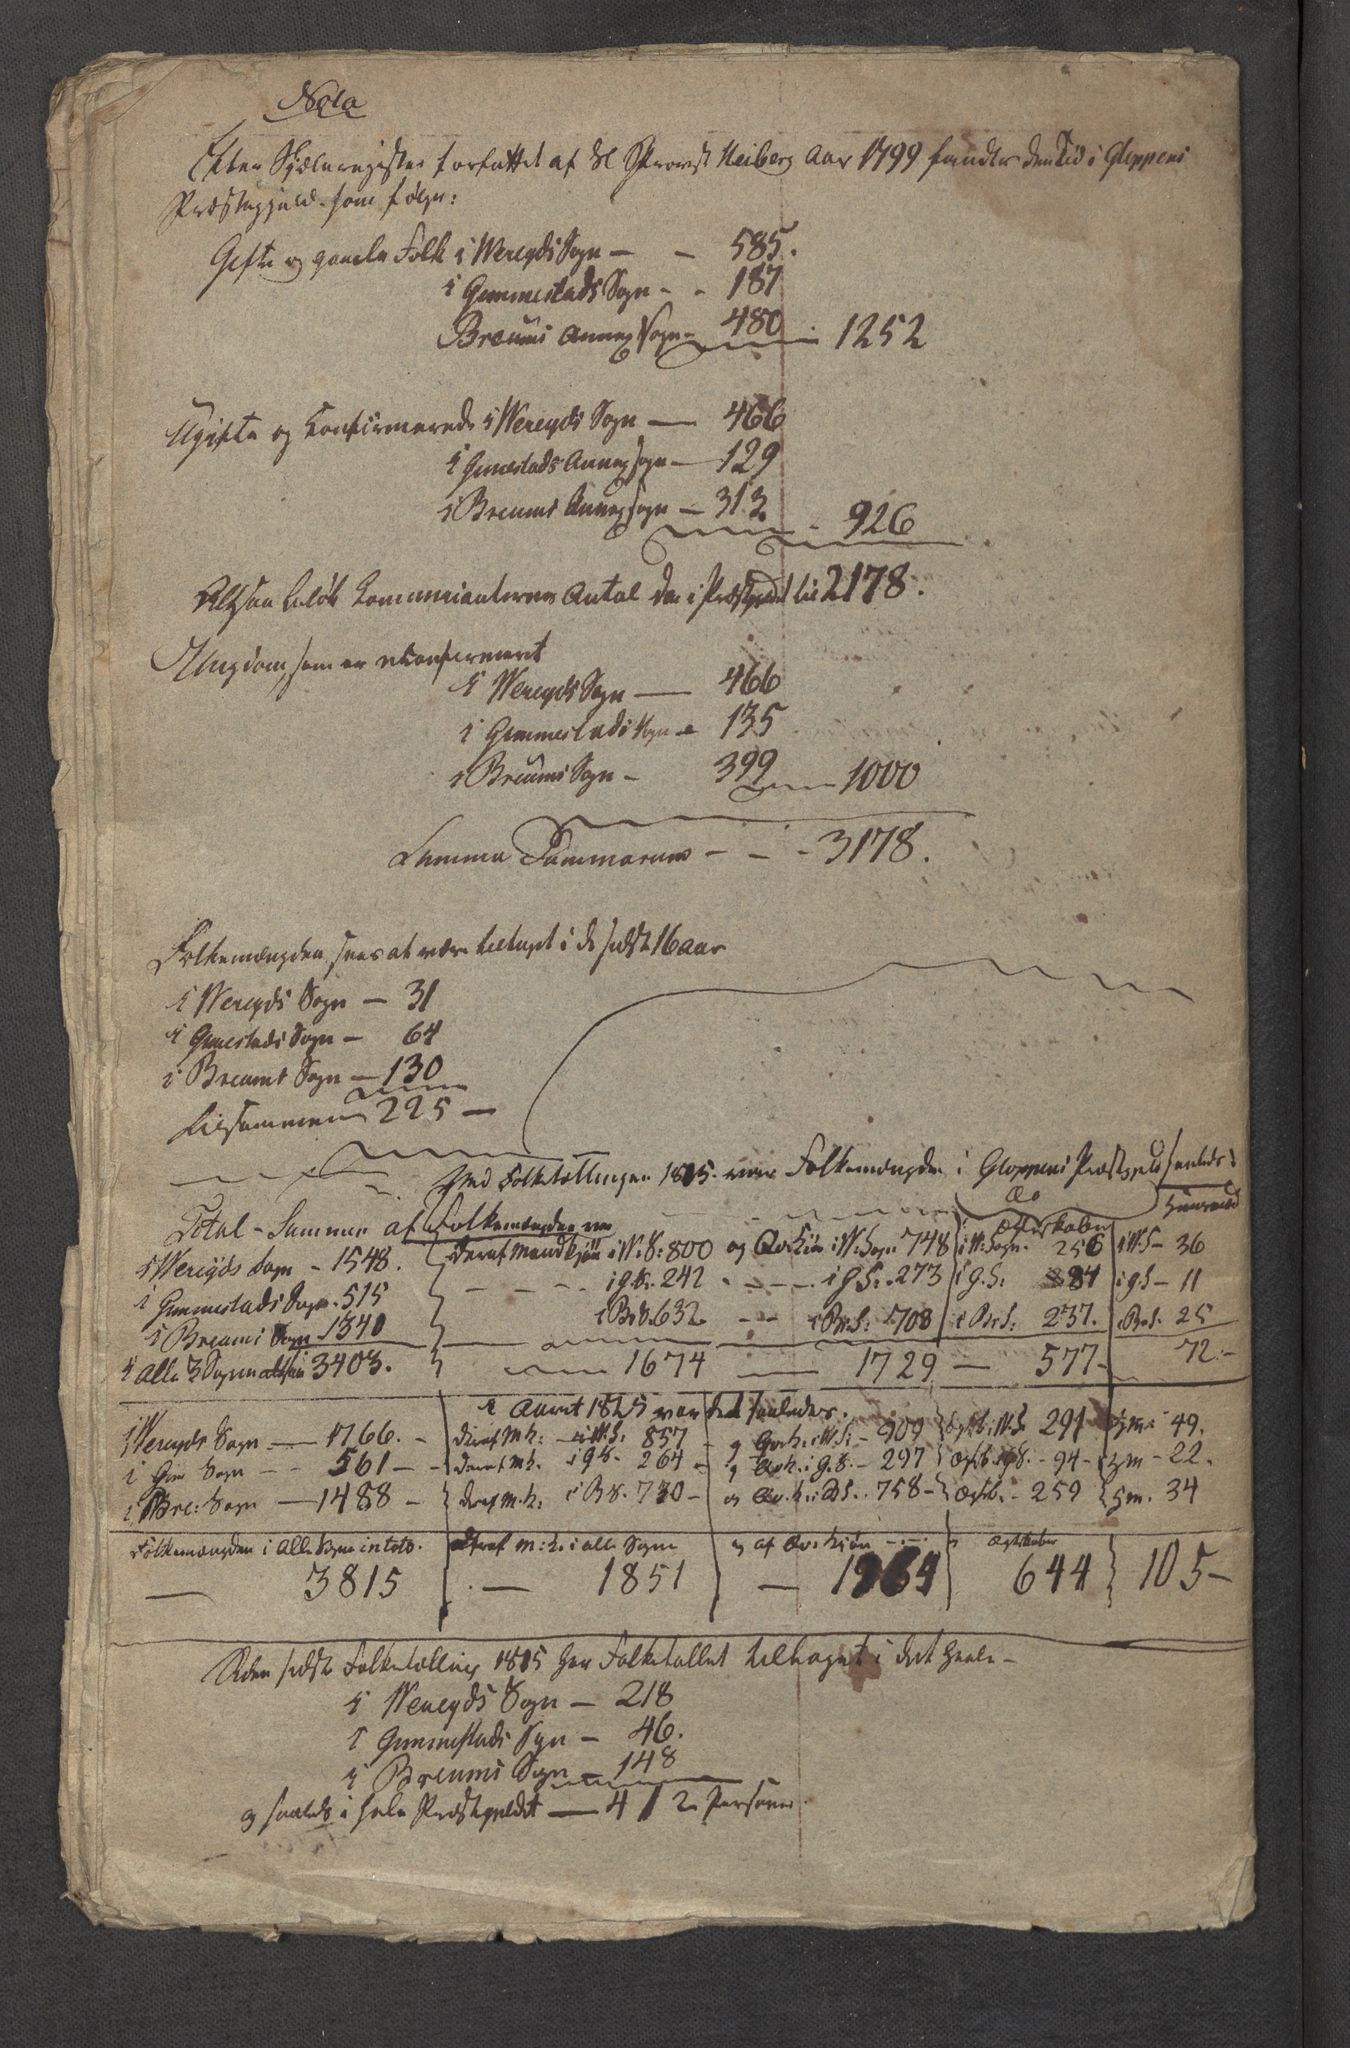 Nota
Efter Sjæleregister forfattet af Sl Provst Heiberg Aar 1799 fandtes den Tid i Gloppens
Præstegjeld som følger:
Gifte og gamle Folk i Wereyds Sogn — - 585.
i Gimmestads Sogn - - 187
Breums Annex Sogn - 480 - 1252
Ugifte og Confirmerede i Wereyds Sogn — 466
i Gimestads Annex Sogn — 129
i Breums Annex Sogn — 313
- 926
Altsaa beløb Communicanternes Antal da i Præstegieldet til 2178.
Ungdom, som er uconfirmeret
i Wereyds Sogn — 466
i Gimmestads Sogn - 135
i Breums Sogn - 399 — 1000
Summa Summarum - - - 3178.
Folkemængden sees at være tiltaget i de sidste 16 aar
i Wereyds Sogn — 31
i Gimestads Sogn — 64
i Breums Sogn — 130
tilsammen 225 —
Ved Folketællingen 1815. var Folkemængden i Gloppens Præstegield saaledes:
Total-Summen af Folkemængden var
Ægteskaber
Huusmænd
i Wereyds Sogn - 1548. deraf Mandkjøn i W. S: 800 og Qvkiøn i W: Sogn 748 i W: Sogn. 256 i WS - 36
i Gimmestads Sogn. 515 - - - i G.S. 242 - - - i G S: 273 i G. S: 84 i G S - 11
i Breums Sogn 1340 i Br S. 632. - - i Br. S: 708 i Br. S: 237. i Br. S. 25
i Alle 3 Sogne altsaa 3403. — 1674 — 1729 — 577 - 72.-
i Aaret 1825 var det saaledes.
i Wereyds Sogn — 1766. - deraf M.k: - i W S: 857 - og Qvk: i W S: - 909 Ægtsk. i W. S 291 Hm: 49.
i Gim Sogn - - 561 - - deraf M k. i G S. 264 - og Qvk. i G. S. - 297 Ægtsk i G S. - 94 - Hm - 22.
i Bre: Sogn — 1488 - deraf M. k: i B S. 730 - og Qv. k i B S. . 758 - Ægtsk. - 259 Hm. 34
Folkemængden i Alle Sogne in toto. deraf M: k. i alle Sogne og af Qv: kjøn - . - . Ægteskaber
— 3815 — 1851 — 1964 644 105 -
Siden sidste Folketælling 1815 har Folketallet tiltaget i det Heele -
i Wereyds Sogn — 218
i Gimmestads Sogn — 46.
i Breums Sogn — 148
og saaleds i hele Præstegieldet — 412 Personer.